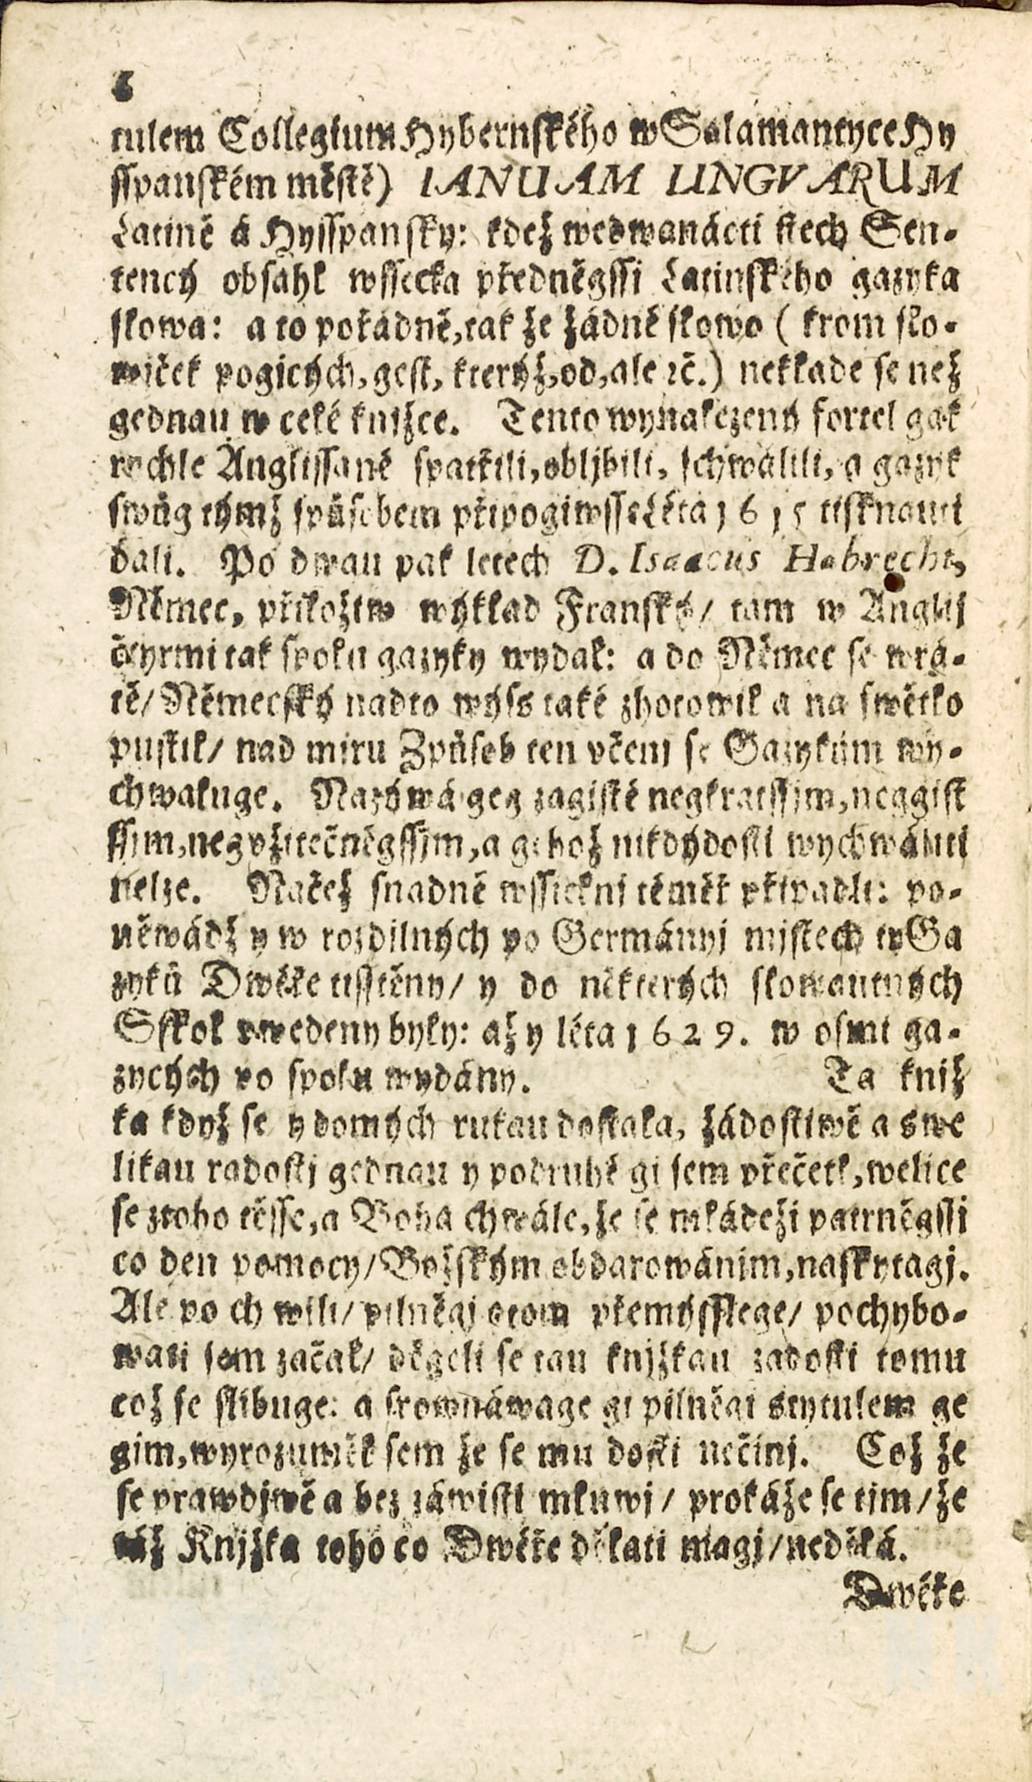 6
tulem Collegium Hybernského w Salamantyce Hy
sspanském městě) IANUAM LINGVARUM
Latině á Hysspansky: kdež we dwanácti stech Sen-
tencý obsáhl wssecka předněgssi Latinského gazyka
slowa: a to pořádně, tak že žádné slowo (krom slo-
wiček pogicých, gest, kterýž, od, ale ꝛč.) neklade se než
gednau w celé knižce. Tento wynalezený fortel gak
rychle Anglissané spatřili, obljbili, schwálili, a gazyk
swůg týmž spůsobem připogiwsse Léta 1615 tisknauti
dali. Po dwau pak letech D. Isaacus Habrecht,
Němec, přiložiw wýklad Franský/ tam w Anglij
čtyrmi tak spolu gazyky wydal: a do Němec se wrá-
tě/ Německý nadto wýss také zhotowil a na swětlo
pustil/ nad mjru Způsob ten včenj se Gazyküm wy-
chwaluge. Nazýwá geg zagisté negkratssjm, neggist
ssjm, negvžitečněgssjm, a gehož nikdý dosti wychwáliti
nelze. Načež snadně wssickni téměř připadli: po-
něwádž y w rozdilných po Germányj mjstech ty Ga
zyků Dwéře tisstěny/ y do některých slowautných
Sskol vwedeny byly: až y léta 1629. w osmi ga-
zycých po spolu wydány. Ta kniž
ka když se y do mých rukau dostala, žádostiwě a s we
likau radostj gednau y podruhé gi sem přečetl, welice
se z toho těsse, a Boha chwále, že se mládeži patrněgssi
co den pomocy/ Božským obdarowánim, naskytagj.
Ale po chwili/ pilněgi o tom přemýsslege/ pochybo-
wati sem začal/ děgeli se tau knjžkau zadosti tomu
což se slibuge: a srownáwage gi pilněgi s tytulem ge
gim, wyrozuměl sem že se mu dosti nečinj. Což že
se prawdjwě a bez záwisti mluwj/ prokáže se tjm/ že
táž Knjžka toho co Dwéře dělati magj/ nedělá.
Dwéře